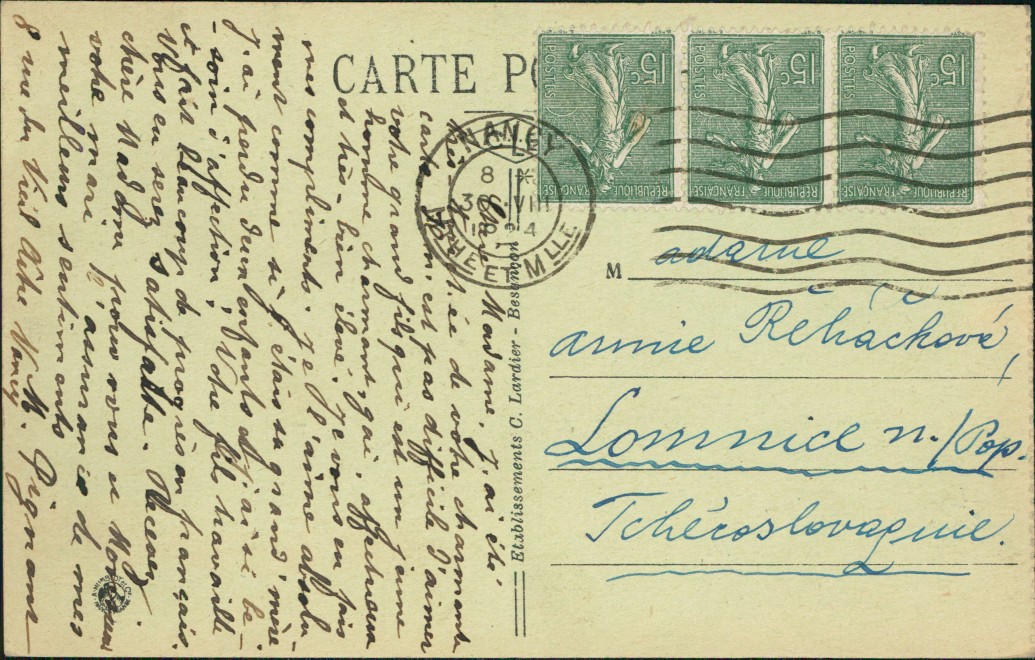 CARTE PO
Chère Madame, j'ai été
très touchée de votre charmante
carte. Il n'est pas difficile d'aimer
votre grand fils qui est un jeune
homme charmant, gai, affectueux
et très-bien élevé. Je vous en fais
mes compliments. Je l'aime absolu
ment comme si j'étais sa grand'mère
J'ai perdu deux enfants et j'ai si be-
-soin d'affection, Votre fils travaille
et fait beaucoup de progrès en français.
Vous en serez satisfaite. Recevez
chère Madame pour vous et Monsieur
votre mari l'assurance de mes
meilleurs sentiments
M. Pignant
8 rue du Vieil Aître Nancy
Etablissements C. Lardier - Besançon
15c
POSTES
RÉPUBLIQUE FRANÇAISE
15c
POSTES
RÉPUBLIQUE FRANÇAISE
15c
POSTES
RÉPUBLIQUE FRANÇAISE
NANCY
8 *
30 VIII
MEURTHE ET MLLE
M adame
Annie Řeháčková,
Lomnice n./Pop.
Tchécoslovaquie.